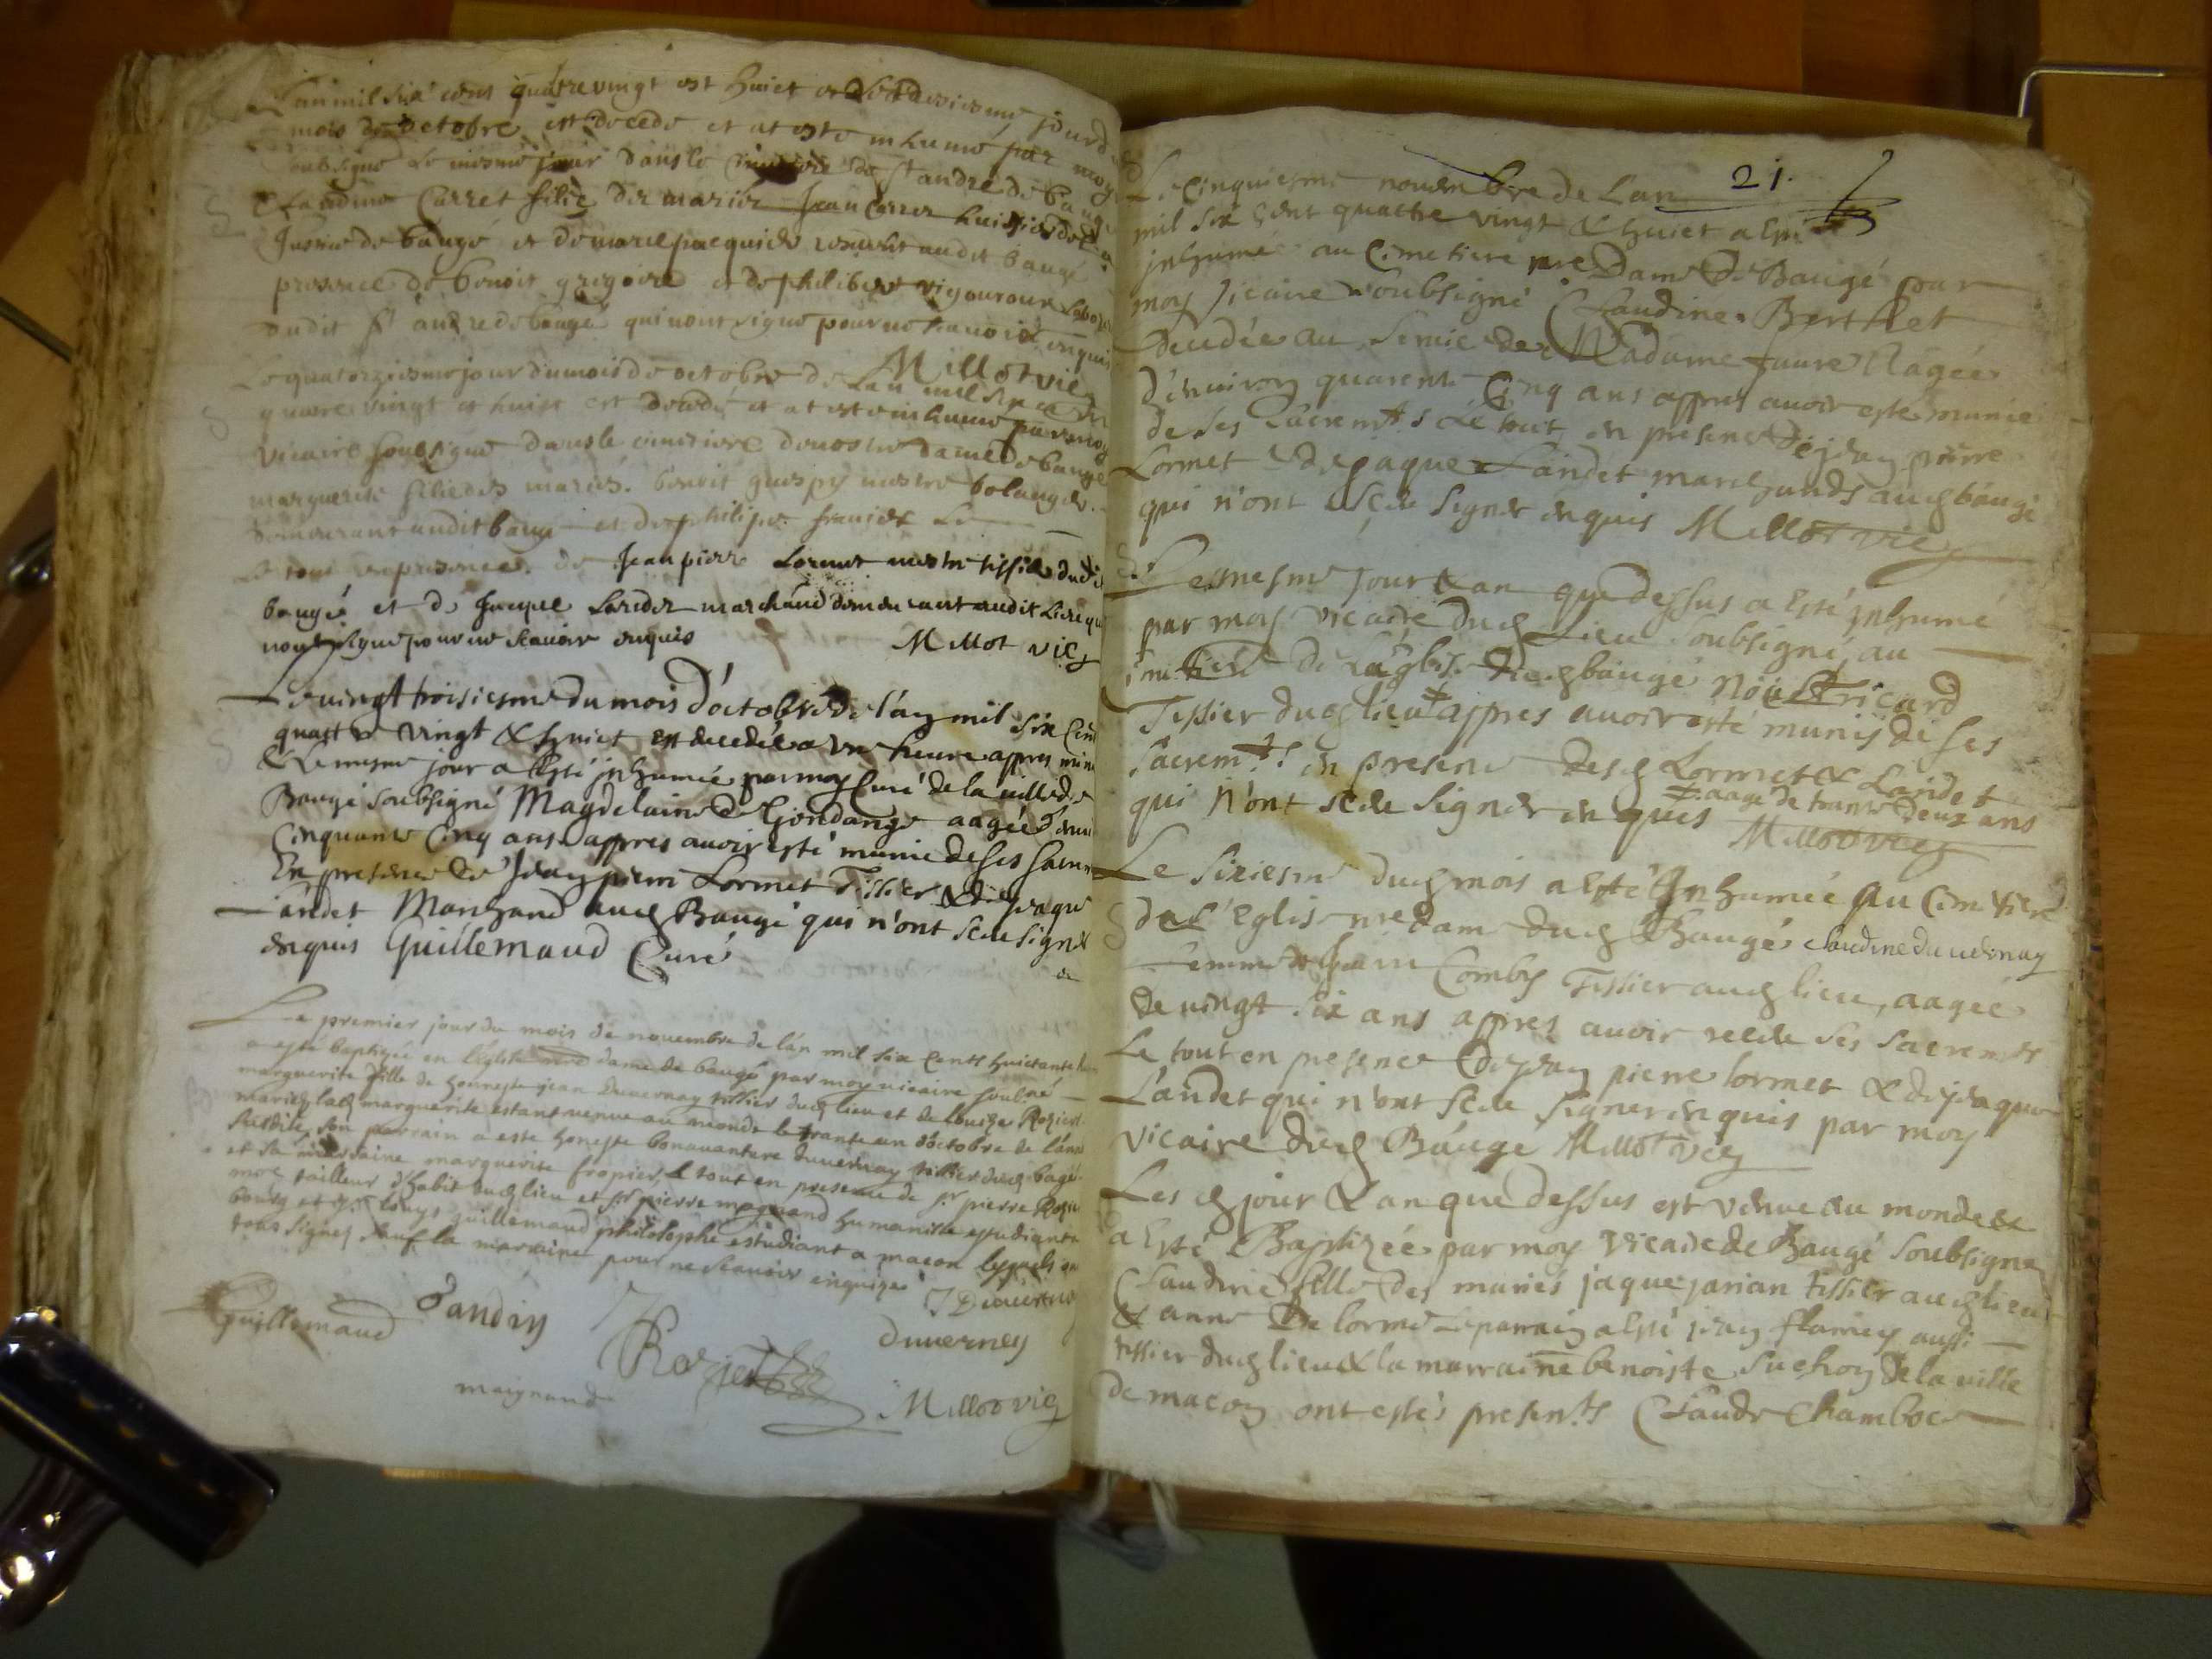 L'an mil six cens quatrevingt est huict et le jour du
mois de octobre est decede et at este inhume par moy
soubsigne le mesme jour dans le de st andre de baugé
Claudine Carret fillie des mariés Jean Carret huissier
Justice de baugé et de marie audit baugé
presence de benoit gregoire et de philibert vigouroux
dudit st andre de baugé qui nont signe pour ne scavoir enquis
Millot vic
Le quatorziesme jour dumois de octobre de lan mil six cen
quatre vingt et huict est decedé et at este inhume par moy
vicaire soubsigne dans le cimitiere de nostre dame de baugé
marguerite fillie des mariés benoit mestre bolanger
demeurant audit baugé et de philipe
Le tout en presence de Jean pierre Lormet mestre tissier dudit
baugé et de Jacque Landet marchand demeurant audit Lieu qui
nont signe pour ne scavoir enquis Millot vic
Le vingt troisiesme du mois d'octobre de l'an mil six Cent
quattre vingt & huict est decedée a une heure appres
& Le mesme jour a Esté inhumée par moy Curé de la ville de
Baugé soubsigné Magdelaine aagée d'envi
Cinquante Cinq ans appres avoir esté munie de ses sacrem
En presence de Jean pierre Lormet Tissier & de jaque
Landet Marchand aud Baugé qui n'ont sceu signer
enquis Guillemaud Curé
Le premier jour du mois de novembre de l'an mil six Cents huictante
a esté baptizée en l'eglise nre dame de baugé par moy vicaire soubné
marguerite fille de honneste jean Duvernay tissier dud lieu et de Louize Rozier
mariez lad marguerite estant venue au monde le trante un d'octobre de l'année
susdite, son parrain a este honeste bonavanture duvernay tissier dud bagé
et sa marraine marguerite fropier, Le tout en presence de sr pierre Rozier
me tailleur d'habit aud lieu et sr pierre magnand humaniste estudiant a
bourg et sr Louys guillemaud philosophe estudiant a macon lesquels on
tous signez sauf la marraine pour ne scavoir enquize
Guillemaud Gandin J Duverney
Duverney
Rozier
maignand Millot vic
21.
Le Cinquiesme novembre de Lan
mil six cent quattre vingt & huict a Esté
jnhumée au Cimetiere nre Dame de Baugé par
moy vicaire soubsigné Claudine Berthet
decedée au servic de Madame faure Aagée
d'environ quarente Cinq ans appres avoir esté munie
de ses sacremts Le tout en presence de jean pierre
Lormet & de jaque Landet marchands aud baugé
qui n'ont sceu signer enquis Millot vic
Le mesme jour & an que dessus a Esté jnhumé
par moy vicaire dud Lieu soubsigné, au
cimetiere de L'aglise dud baugé Noël Fricard
Tissier dud lieu ≠ appres avoir esté munis de ses
sacremts en presence desd Lormet & Landet
qui n'ont sceu signer enquis ≠ aagé de trante deux ans
Millot vic
Le sixiesme dud mois a esté Jnhumée Au Cimetiere
de L'Eglise nre dame dud Baugé Claudine duvernay
femme de Comby Tissier aud lieu, aagée
de vingt six ans appres avoir receu ses sacremts
Le tout en presence de jean pierre lormet & de jaque
Landet qui n'ont sceu signer enquis par moy
vicaire dud Baugé Millot vic
Lesd jour & an que dessus est venue au monde &
a Esté Baptizée par moy vicaire de Baugé soubsigné
Claudine fille des mariés jaque janian tissier aud lieu
& anne De lorme Le parrain a Esté jean flamey aussi
tissier dud lieu & la marraine benoiste suchon de la ville
de macon ont estés presents Claude Chamboc